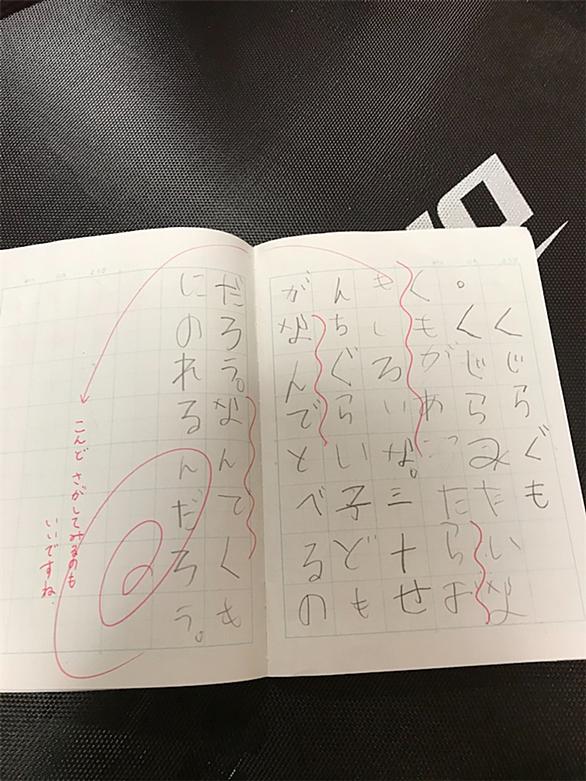 くじらぐも
。くじらみたいな
くもがあったらお
もしろいな。三十せ
んちぐらい子ども
がなんでとべるの
だろう。なんてくも
にのれるんだろう。
こんど さがしてみるのも
いいですね。